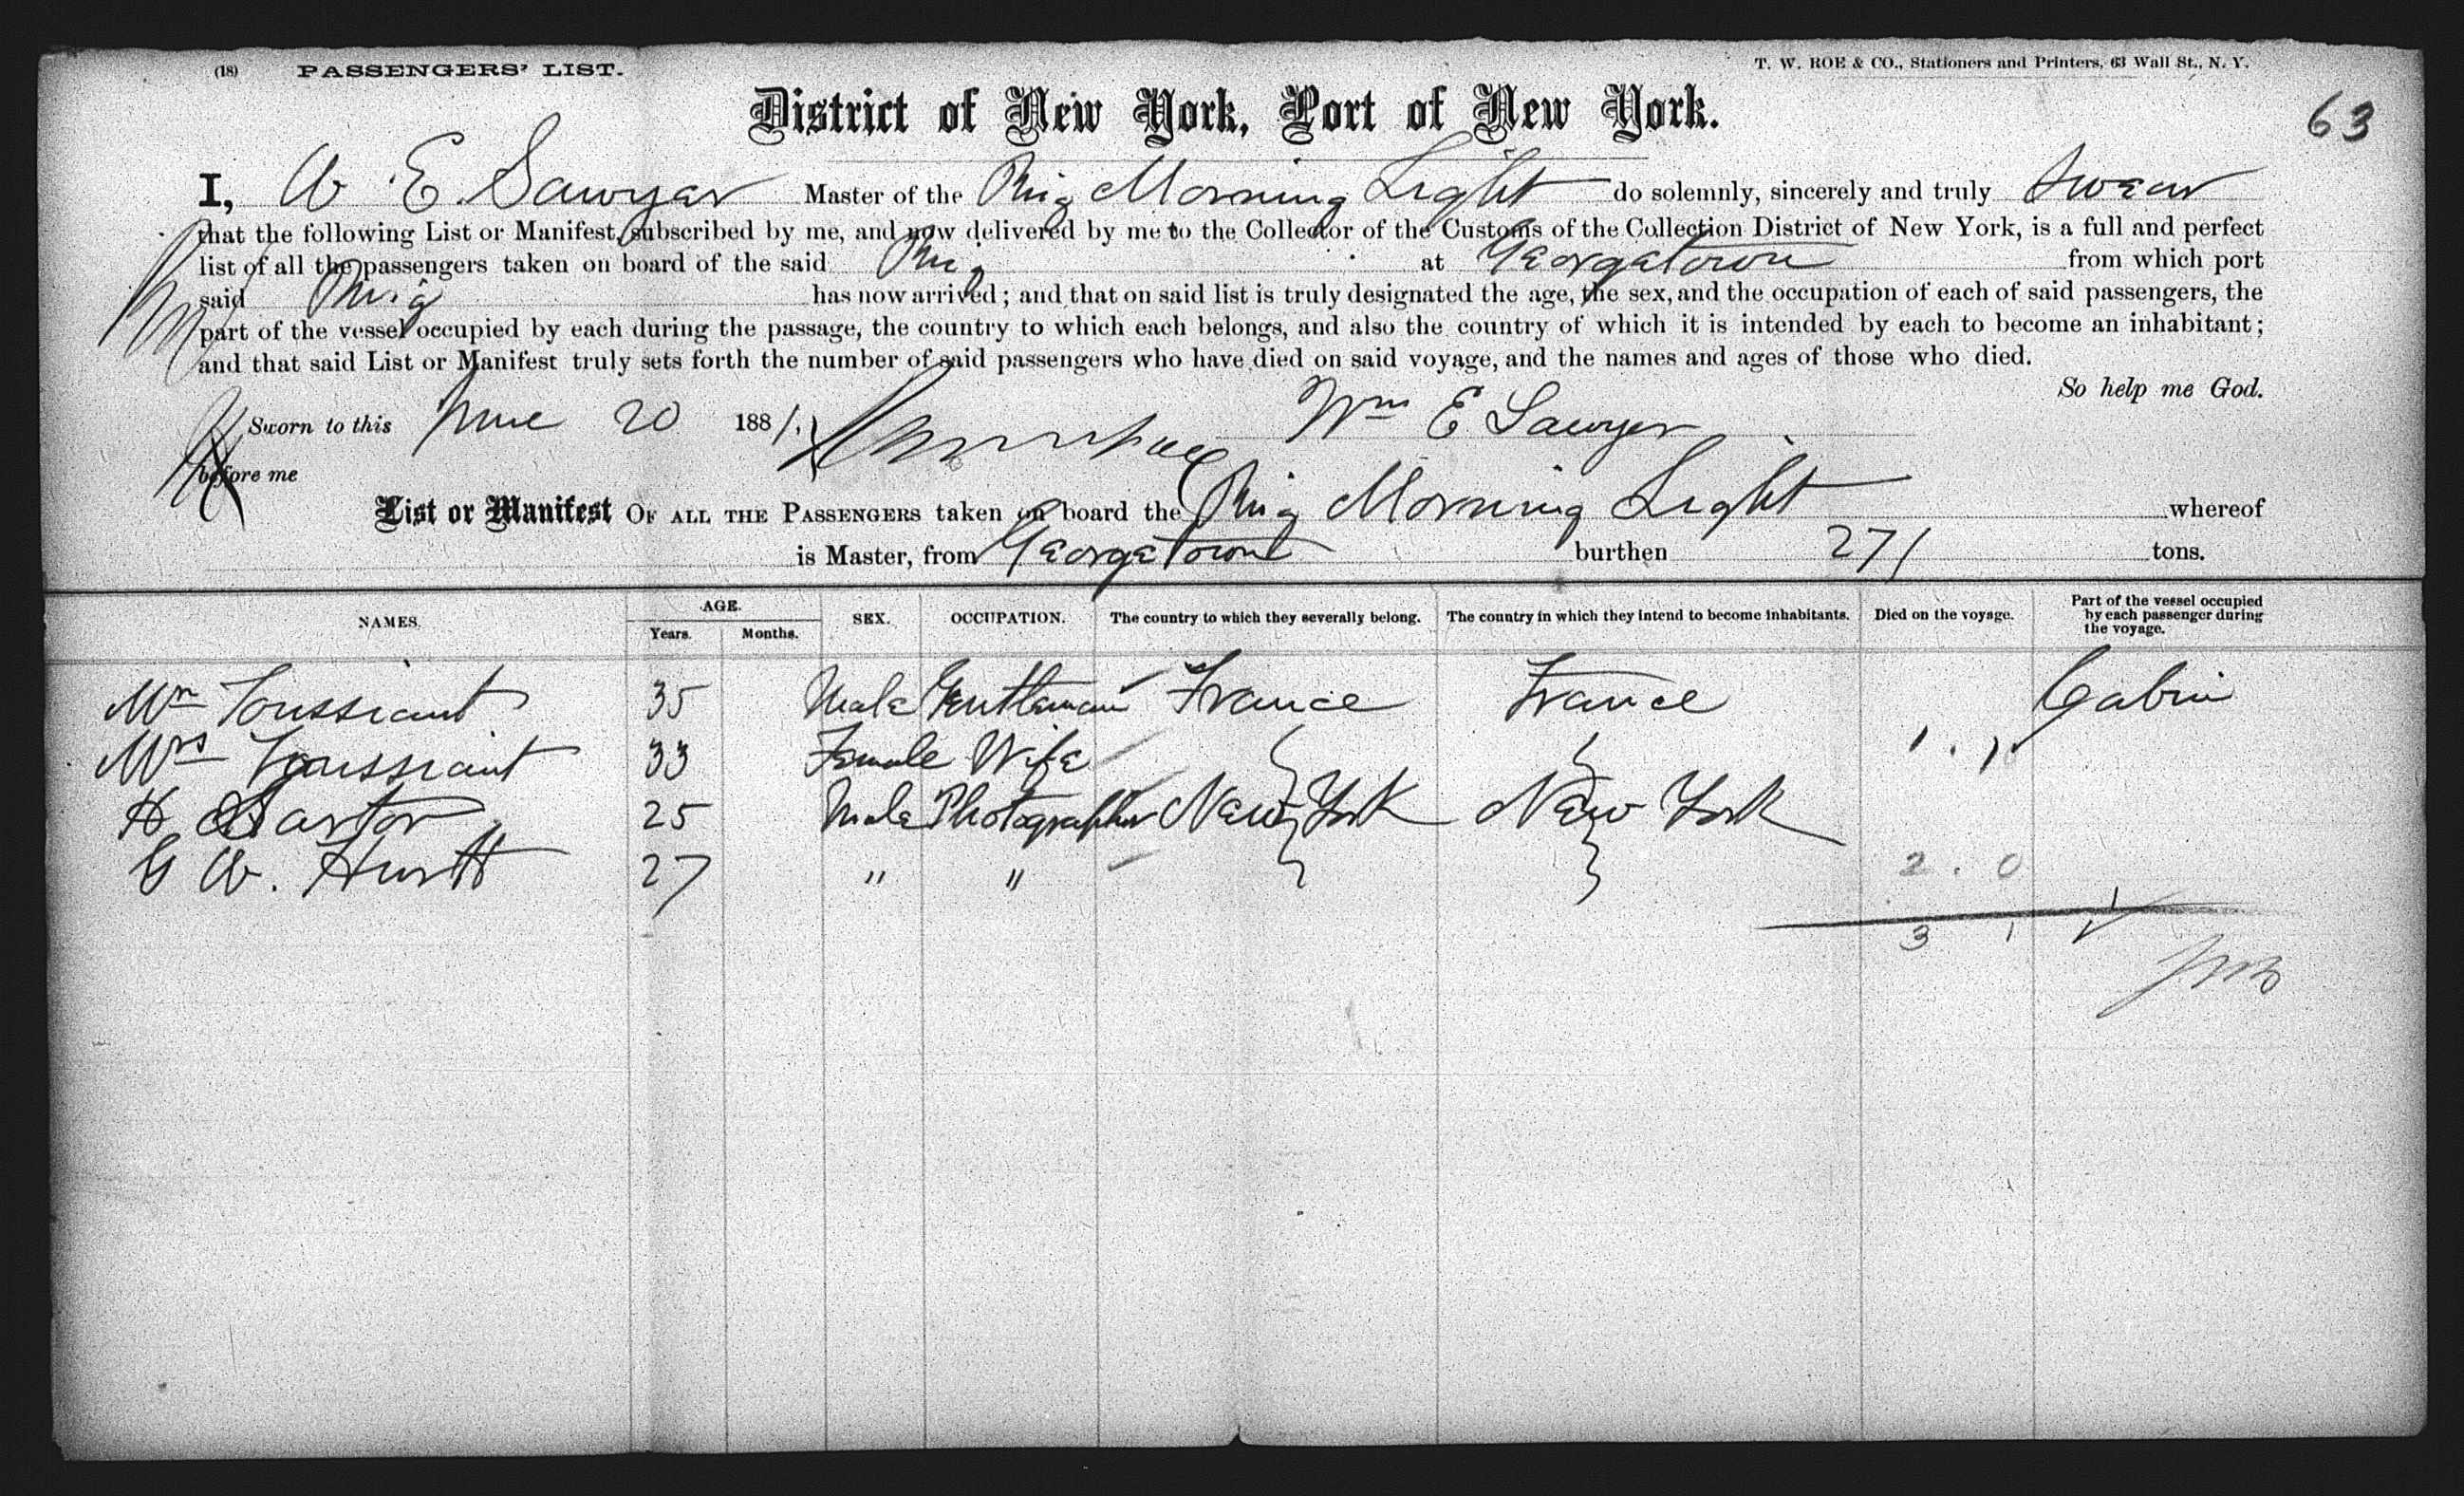 (18) PASSENGERS' LIST. T. W. ROE & CO., Stationers and Printers, 63 Wall St., N. Y.
District of New York, Port of New York.
63
I, W E. Sawyer Master of the Brig Morning Light do solemnly, sincerely and truly swear
that the following List or Manifest, subscribed by me, and now delivered by me to the Collector of the Customs of the Collection District of New York, is a full and perfect
list of all the passengers taken on board of the said Brig at Georgetown from which port
said Brig has now arrived; and that on said list is truly designated the age, the sex, and the occupation of each of said passengers, the
part of the vessel occupied by each during the passage, the country to which each belongs, and also the country of which it is intended by each to become an inhabitant;
and that said List or Manifest truly sets forth the number of said passengers who have died on said voyage, and the names and ages of those who died.
So help me God.
Sworn to this June 20 1881. Wm E Sawyer
before me
List or Manifest OF ALL THE PASSENGERS taken on board the Brig Morning Light whereof
is Master, from Georgetown burthen 271 tons.
NAMES. AGE. Years. Months. SEX. OCCUPATION. The country to which they severally belong. The country in which they intend to become inhabitants. Died on the voyage. Part of the vessel occupied by each passenger during the voyage.
Mr Toussiant 35 Male Gentleman France France Cabin
Mrs Toussiant 33 Female Wife 1 . 1
H Sartor 25 Male Photographer New York New York
G W. Hurtt 27 " " 2 . 0
3 1